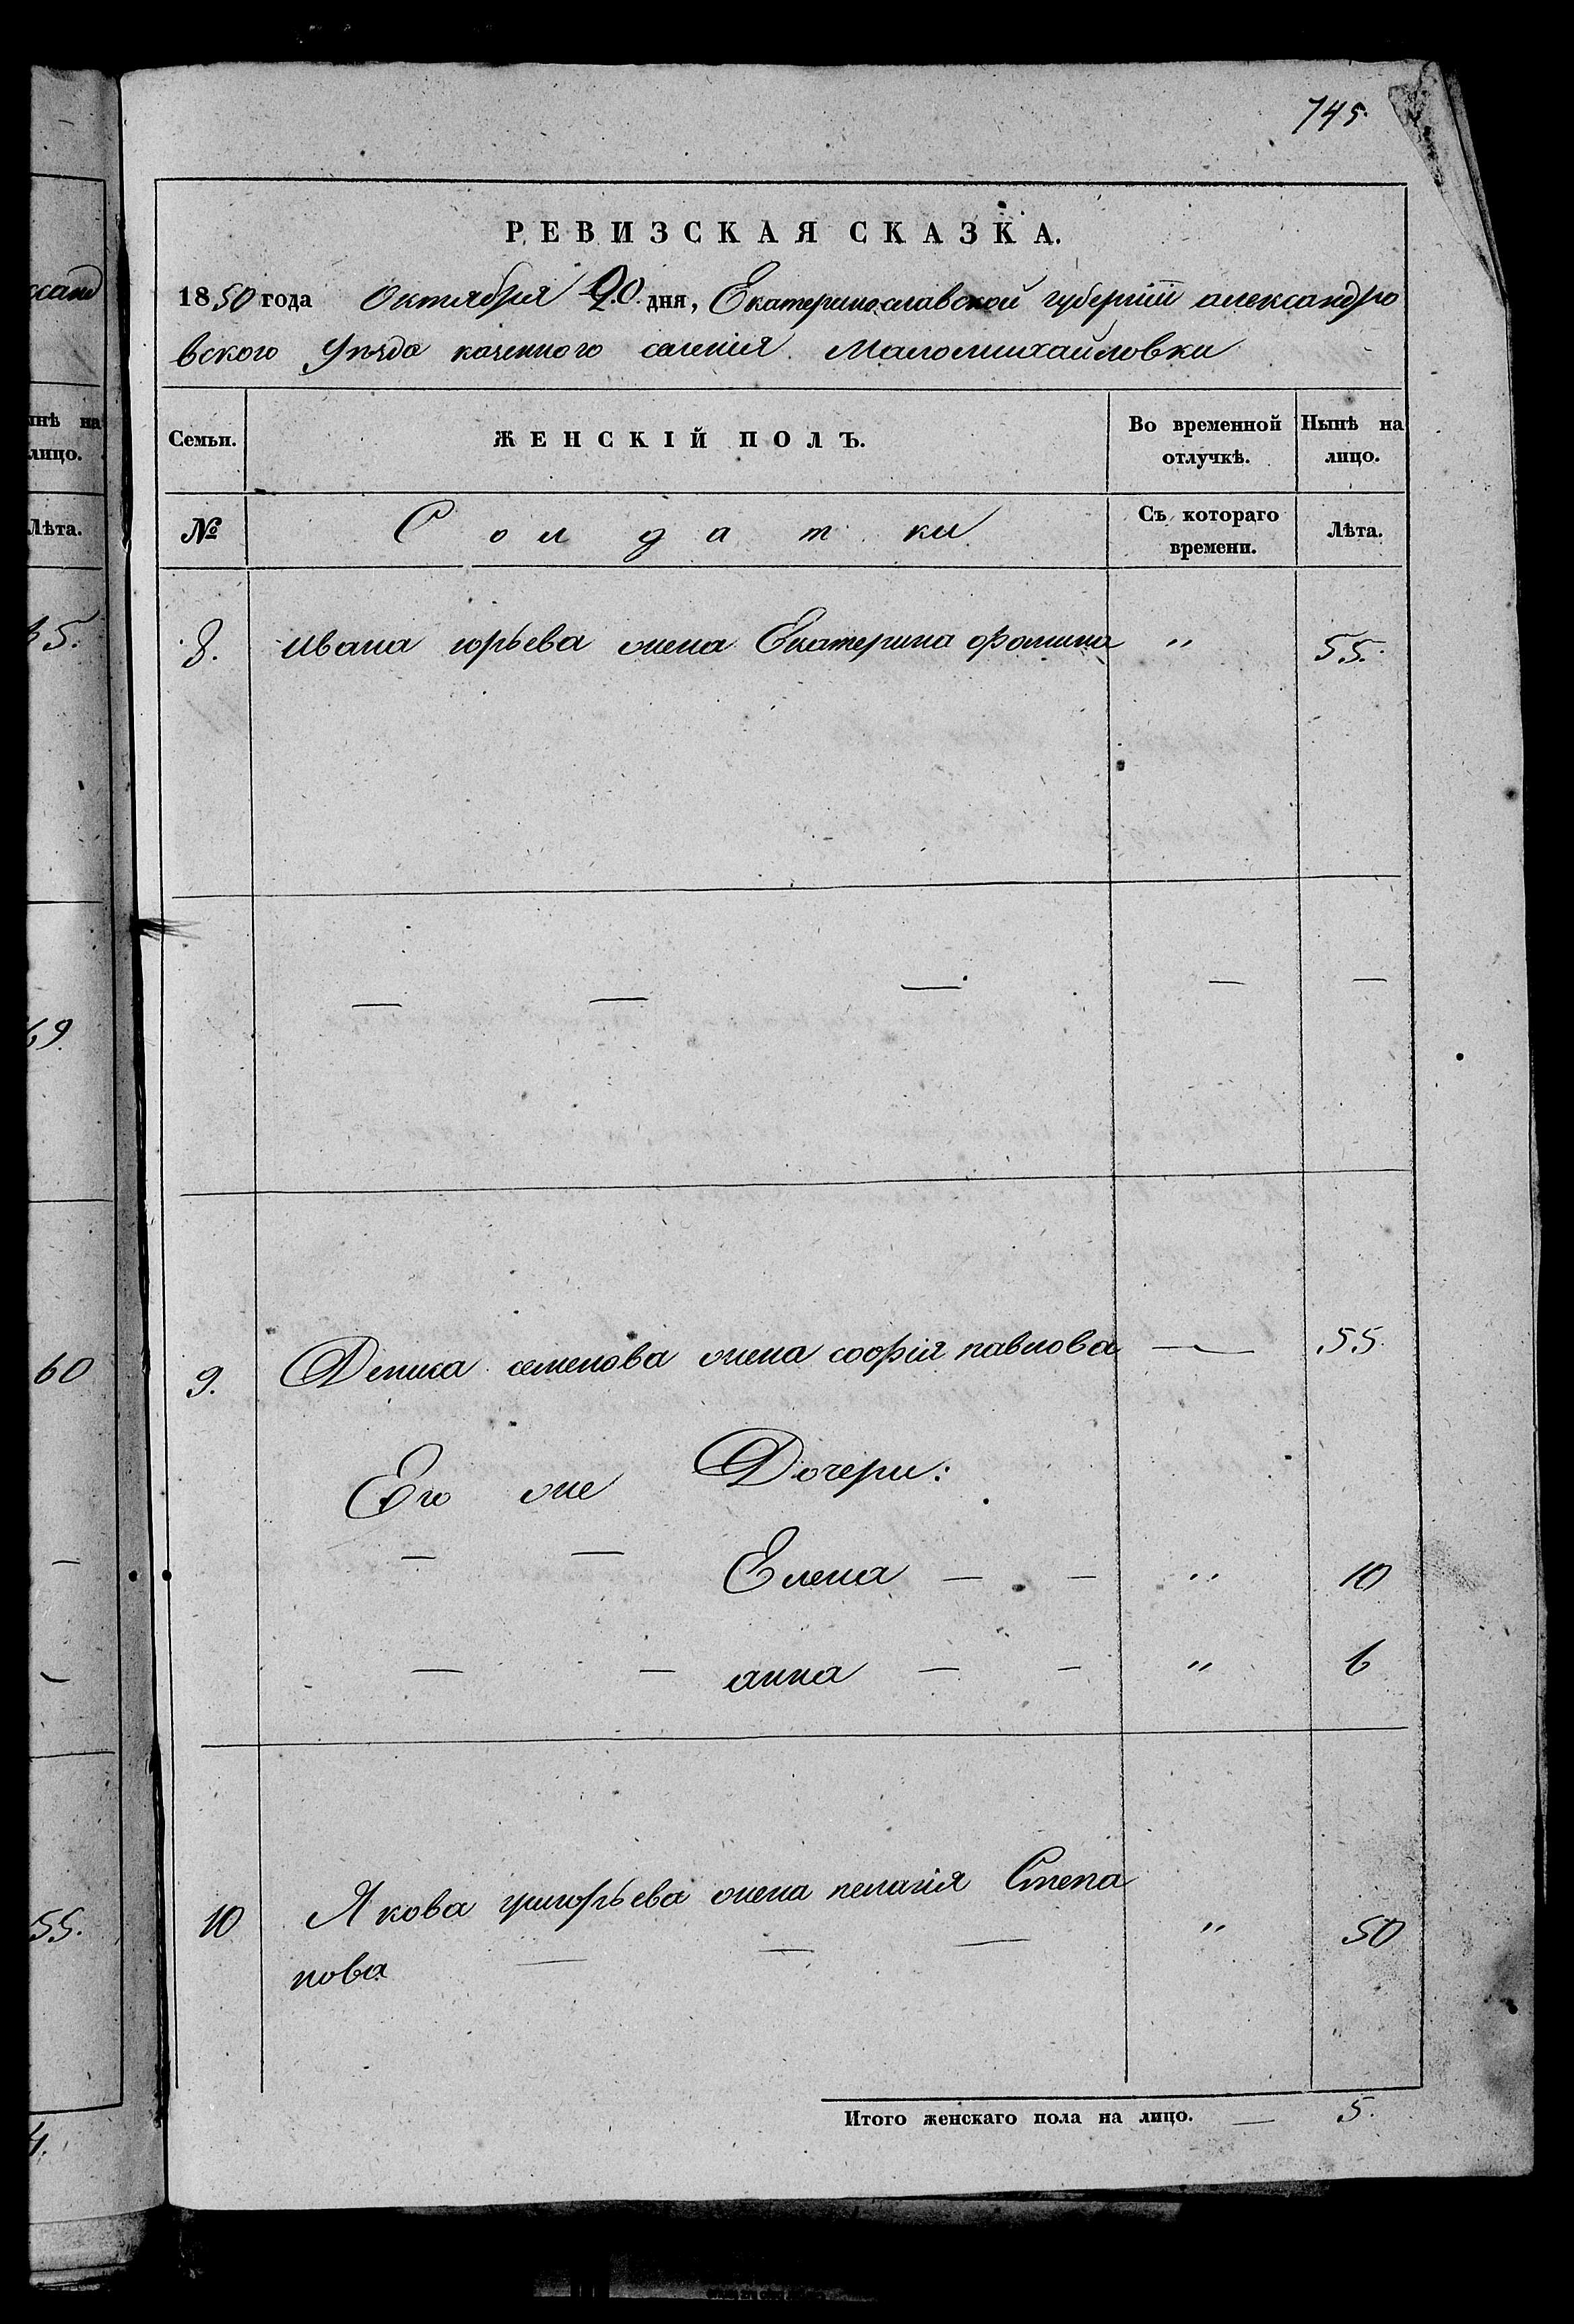 745.
РЕВИЗСКАЯ СКАЗКА.
1850 года Октября 20. дня, Екатеринославской губерніи александро
вского Уѣзда казенного селенія Маломихайловки
Семьи. ЖЕНСКІЙ ПОЛЪ. Во временной отлучкѣ. Нынѣ на лицо.
№ Солдатки Съ котораго времени. Лѣта.
8. Ивана юрьева жена Екатерина фомина " 55.
— — — — —
9. Дениса семенова жена софия павлова — 55.
Его же Дочери:
— — Елена — — " 10
— — анна — — " 6
10 Якова григорьева жена пелагія Степа
нова — — — " 50
Итого женскаго пола на лицо. — 5.
ксанд
ынѣ на
лицо.
Лѣта.
5.
69.
60
—
—
55.
4.